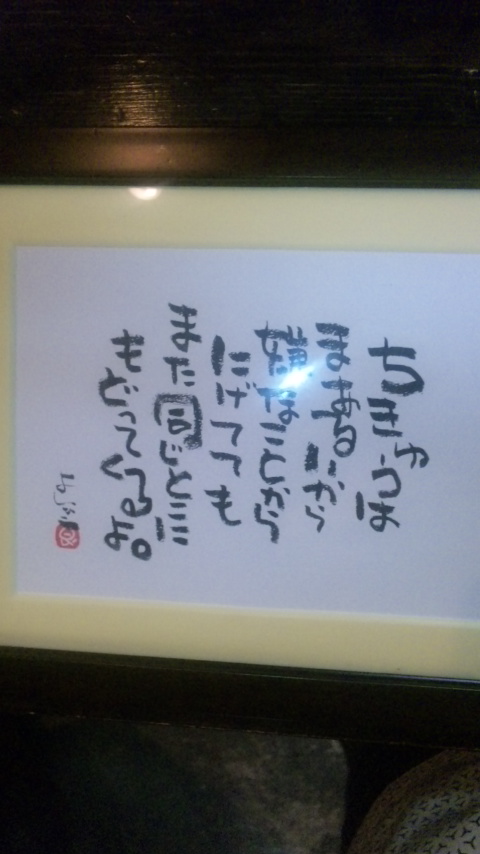 ちきゅうは
まあるいから
嫌なことから
にげてても
また同じとこに
もどってくるよ。